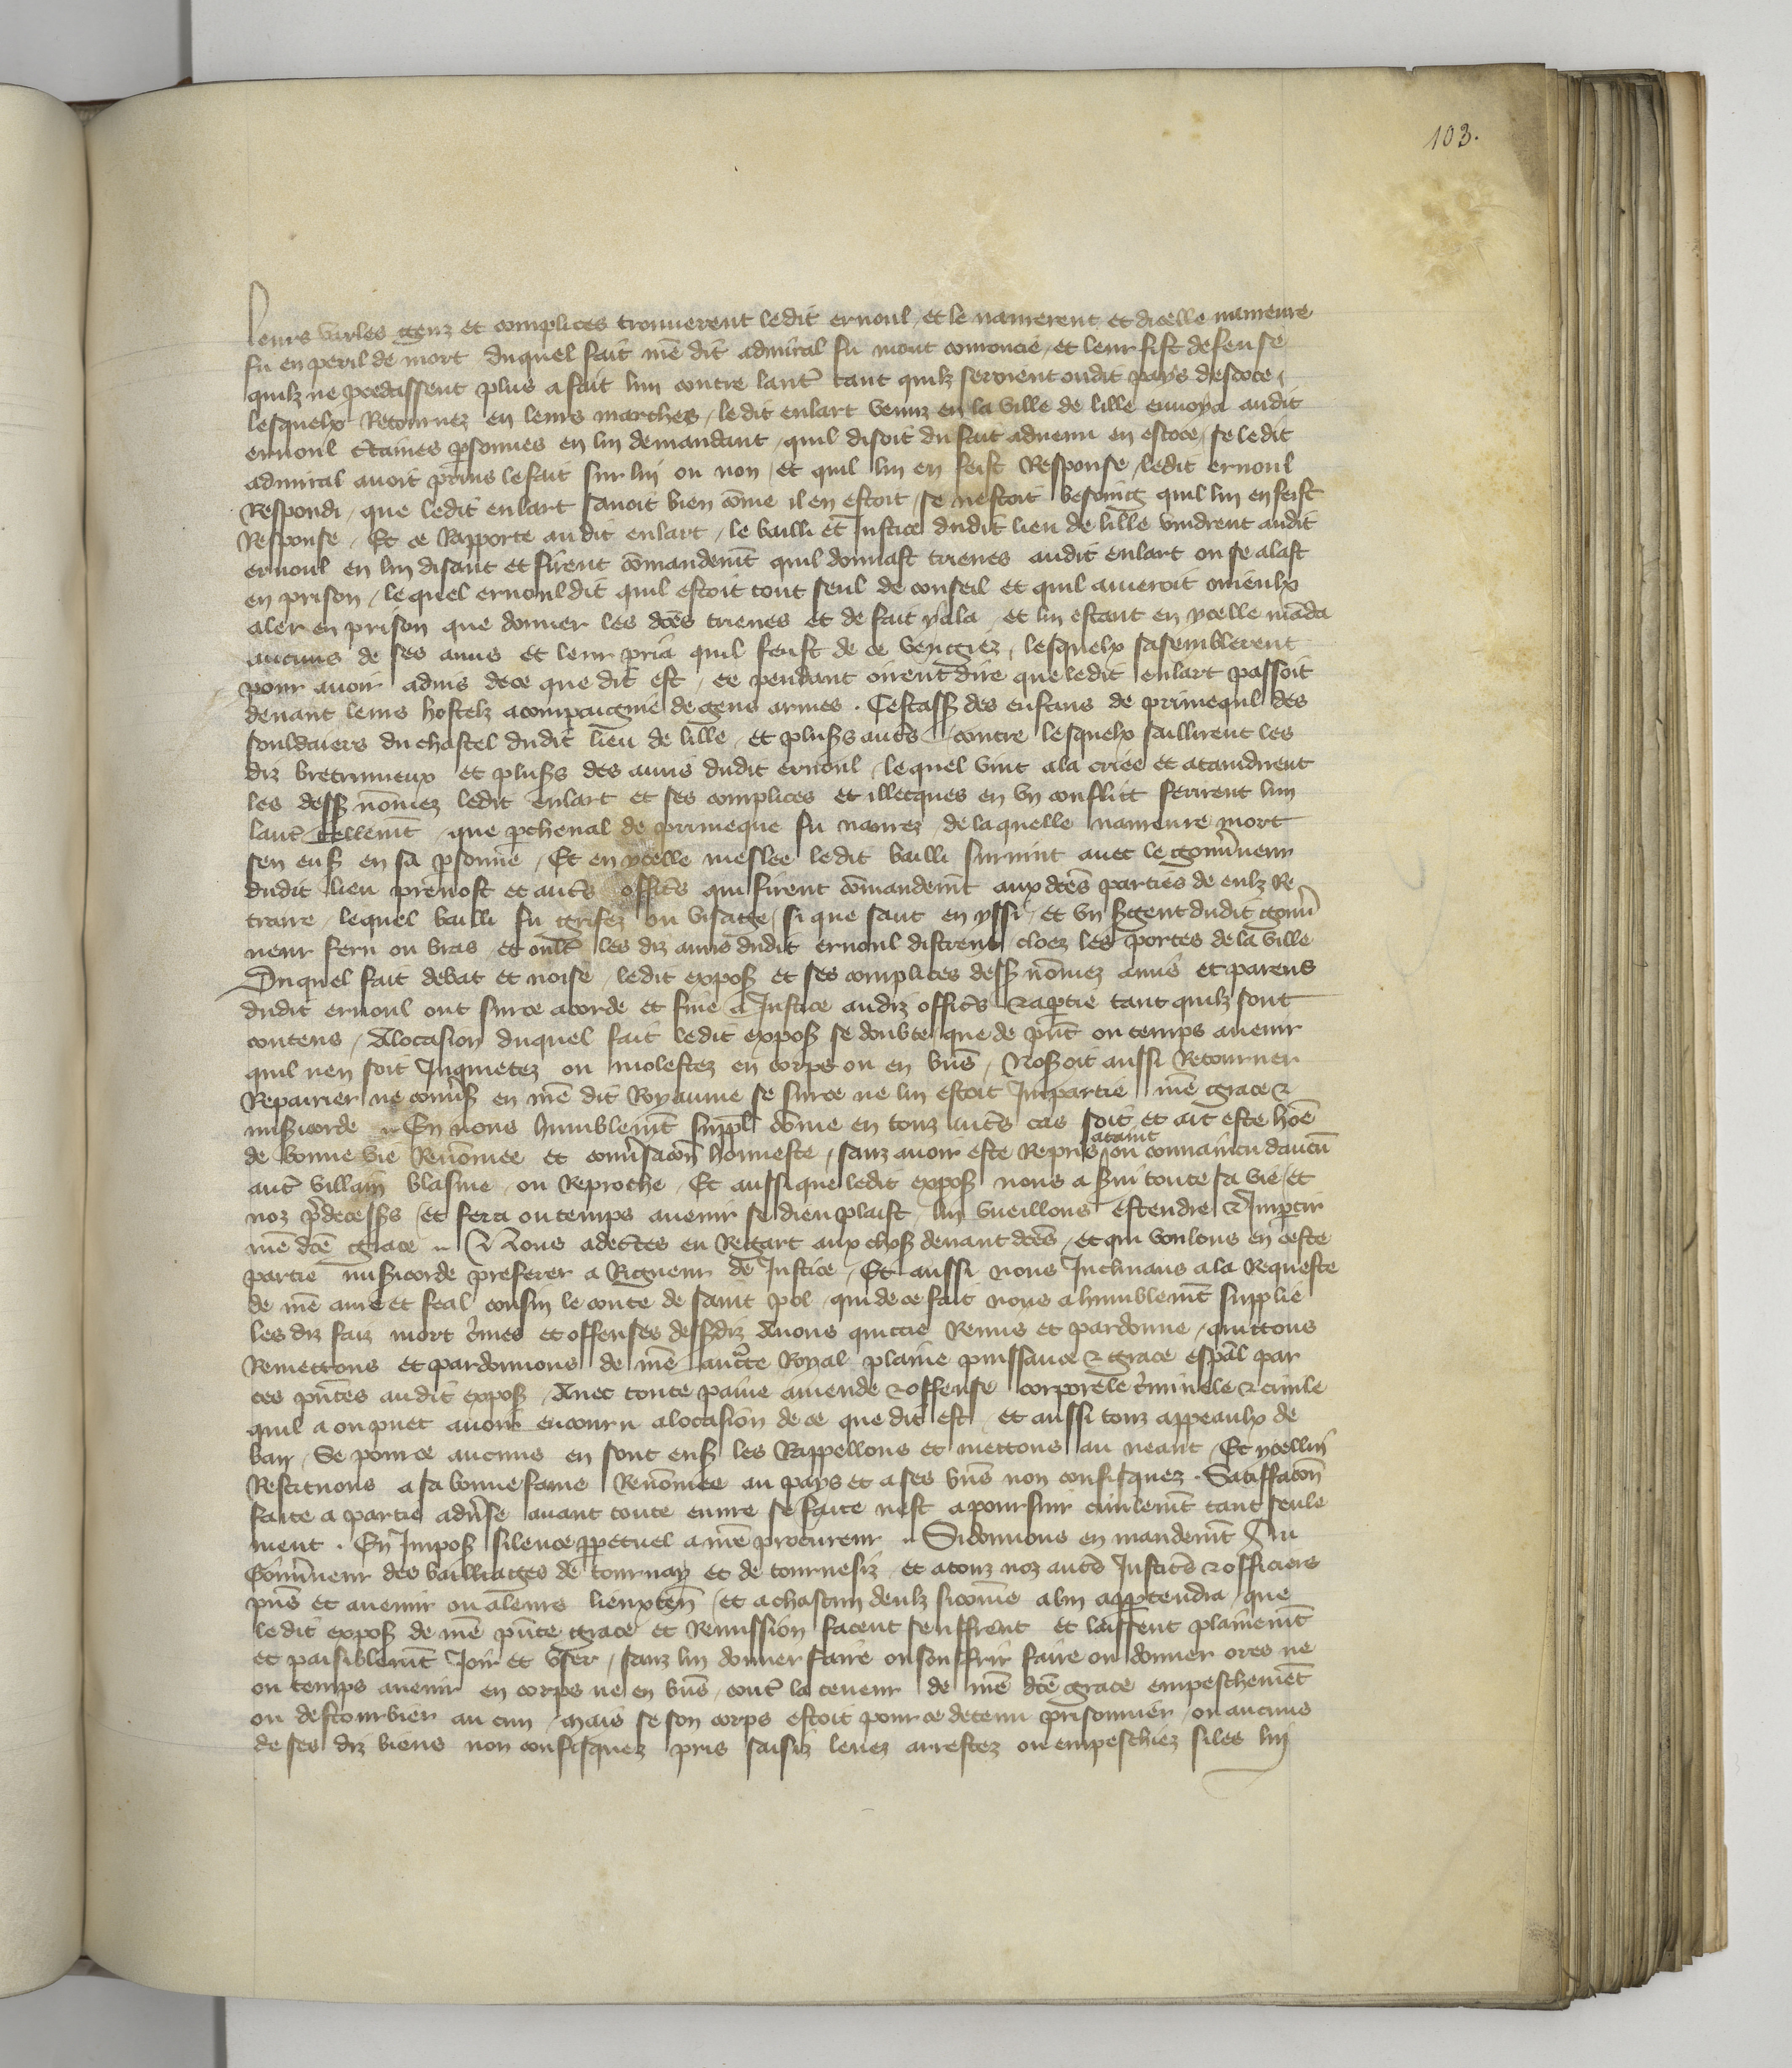 103.
leurs varles genz et complices trouuerent ledit ernoul et le naurerent et dicelle naureure
fu en peril de mort duquel fait nr̄e dit admiral fu mout corroucie et leur fist defense
quilz ne procedassent plus a fait lun contre laut̄ tant quilz seroient oudit pays descoce
lesquelx Retournez en leurs marches / ledit enlart venuz en la ville de lille enuoya audit
ernoul c̄taines p̄sonnes en lui demandant quil disoit du fait aduenu en escoce se ledit
admiral auoit prins le fait sur lui ou non / et quil lui en feist Response / ledit ernoul
Respondi / que ledit enlart sauoit bien cōme il en estoit / se nestoit besoing quil lui en feist
Response / Et ce Rapporte audit enlart / le bailli et Justice dudit lieu de lille vindrent audit
ernoul en lui disant et firent cōmandemt̄ quil donnast trieues audit enlart ou se alast
en prison / lequel ernoul dit quil estoit tout seul de conseil et quil aimeroit mieulx
aler en prison que donner les dc̄es trieues et de fait y ala / et lui estant en ycelle māda
aucuns de ses amis et leur pria quil feust de ce vengiez / lesquelx sasemblerent
pour auoir aduis de ce que dit est / ce pendant oirent dire que ledit enlart passoit
deuant leurs hostelz acompaignie de gens armes . Cestass̄ des enfans de primequl des
souldaiers du chastel dudit lieu de lille et plus̄s aut̄s contre lesquelx saillirent les
diz bretrimieux et plus̄s des amis dudit ernoul / lequel vint ala criee et ataindrent
les dess̄ nōmez ledit enlart et ses complices et illecques en vn conflict ferirent lun
laut̄ tellemt̄ que p̄cheual de primeque fu naurez de laquelle naureure mort
sen ens̄ en sa p̄sonne / Et en ycelle meslee ledit bailli suruint auec le gouūneur
dudit lieu preuost et aut̄s offic̄s qui firent cōmandemt̄ aux dc̄es parties de eulz Re
traire / lequel bailli fu grifez ou visaige si que sanc en yssi et vn s̄gent dudit gouū
neur feru ou bras et oult̄ les diz amis dudit ernoul distrent cloez les portes de la ville
Duquel fait debat et noise ledit expos̄ et ses complices dess̄ nōmez amis et parens
dudit ernoul ont sur ce acorde et fine a Justice audiz offic̄s & a p̄tie tant quilz sont
contens / Alocasion duquel fait ledit expos̄ se doubte que de pn̄t ou temps auenir
quil nen soit Inquietez ou molestez en corps ou en biēs / Nos̄oit aussi Retourner
Repairier ne conūs̄ en nr̄e dit Royaume se sur ce ne lui estoit Impartie nr̄e grace &
mis̄icorde .. En nous humblemt̄ suppl̄ cōme en touz aut̄s cas soit et ait este hōe
de bonne vie Renōmee et conūsacōn honneste / sanz auoir este Repris ataint ou conuaincu daucū
aut̄ villain blasme ou Reproche / Et aussi que ledit expos̄ nous a s̄ui toute sa vie et
noz p̄decess̄s et fera ou temps auenir se dieu plaist / lui vueillons estendre & Imp̄tir
nr̄e dc̄e grace .. Nous adec̄tes eu Regart aux chos̄ deuant dc̄es et qui voulons en ceste
partie mis̄icorde preferer a Rigueur de Justice / Et aussi nous Inclinans a la Requeste
de nr̄e ame et feal cousin le conte de saint pol qui de ce fait nous a humblemt̄ supplie
les diz faiz mort c̄mes et offenses dess̄diz Auons quictie Remis et pardonne / quittons
Remettons et pardonnons de nr̄e aucto͛te Royal plaine puissance & grace esp̄al par
ces pn̄tes audit expos̄ / Auec toute paine amende & offense corporele c̄minele & ciuile
quil a ou puet auoir encouru alocasion de ce que dit est / et aussi touz appeaulx de
ban / Se pour ce aucuns en sont ens̄ les Rappellons et mettons au neant / Et ycellui
Restituons a sa bonne fame Renōmee au pays et a ses biēs non confisquez . Satiffacōn
faite a partie adūse auant toute euure se faite nest a poursuir ciuilemt̄ tant seule
ment . En Impos̄ silence p̄petuel a nr̄e procureur .. Si donnons en mandemt̄ Au
Gouūneur des bailliages de tournay et de tournesiz et a touz noz aut̄s Justic̄s & officiers
pn̄s et auenir ou a leurs lieuxten̄ et a chascun deulz si cōme a lui app̄tendra / que
ledit expos̄ de nr̄e pn̄te grace et Remission facent seuffrent et laissent plainemt̄
et paisiblemt̄ Joir et vser / sanz lui donner faire ou souffrir faire ou donner ores ne
ou temps auenir en corps ne en biēs / cont̄ la teneur de nr̄e dc̄e grace empeschemēt
ou destourbier aucun / mais se son corps estoit pour ce detenu prisonnier / ou aucuns
de ses diz biens non confisquez pris saisiz leuez arrestez ou empeschiez si les lui